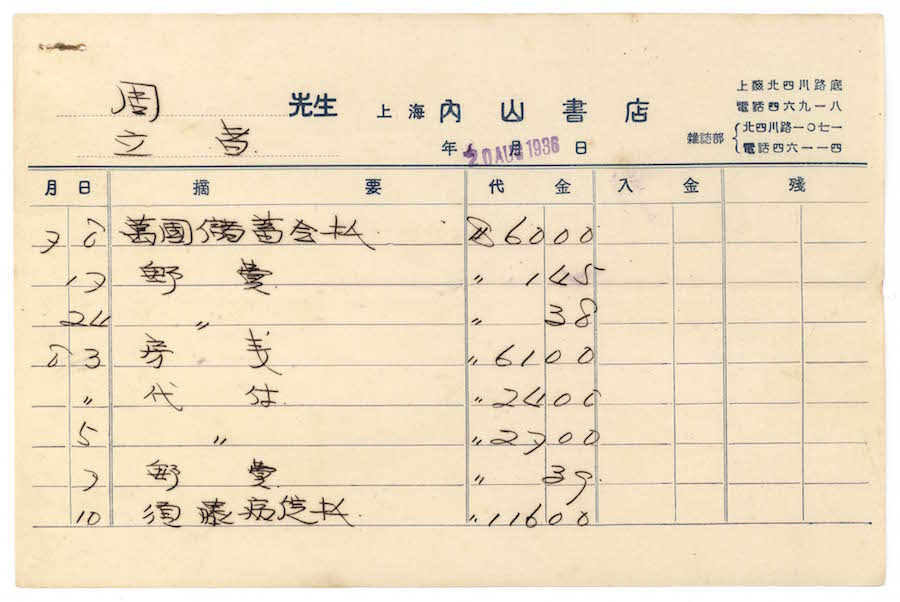 周 先生 上海 內山書店
立 年 月 日
20 AUG 1936
上海北四川路底
電話四六九一八
雜誌部 北四川路一〇七一
電話四六一一四
月 日 摘 要 代 金 入 金 殘
7 8 萬國儲蓄会払 6000
17 野 145
24 〃 〃 38
8 3 房 〃 6100
〃 代 付 〃 2400
5 〃 〃 2700
7 野 〃 39
10 須藤病院払 〃 11600